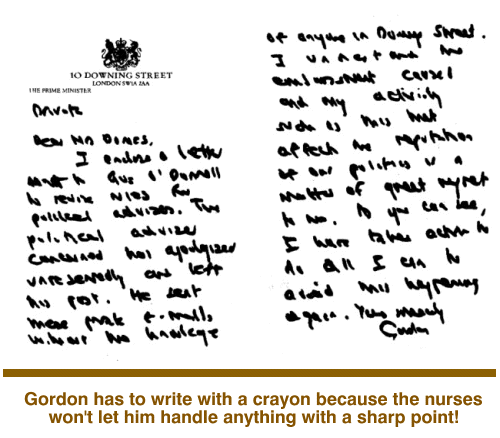 10 DOWNING STREET
LONDON SW1A 2AA
THE PRIME MINISTER
Private
Dear
I a letter
to Gus O'Donnell
to revise rules for
political advisers. The
political adviser
concerned has apologised
unreservedly and left
his post. He sent
these private e-mails
without the knowledge
of anyone in Downing Street.
I understand the
embarrassment caused
and any activity
such as this that
affects the reputation
of our politics is a
matter of great regret
to me. As you can see,
I have taken action to
do all I can to
avoid this happening
again. Yours sincerely
Gordon
Gordon has to write with a crayon because the nurses
won't let him handle anything with a sharp point!